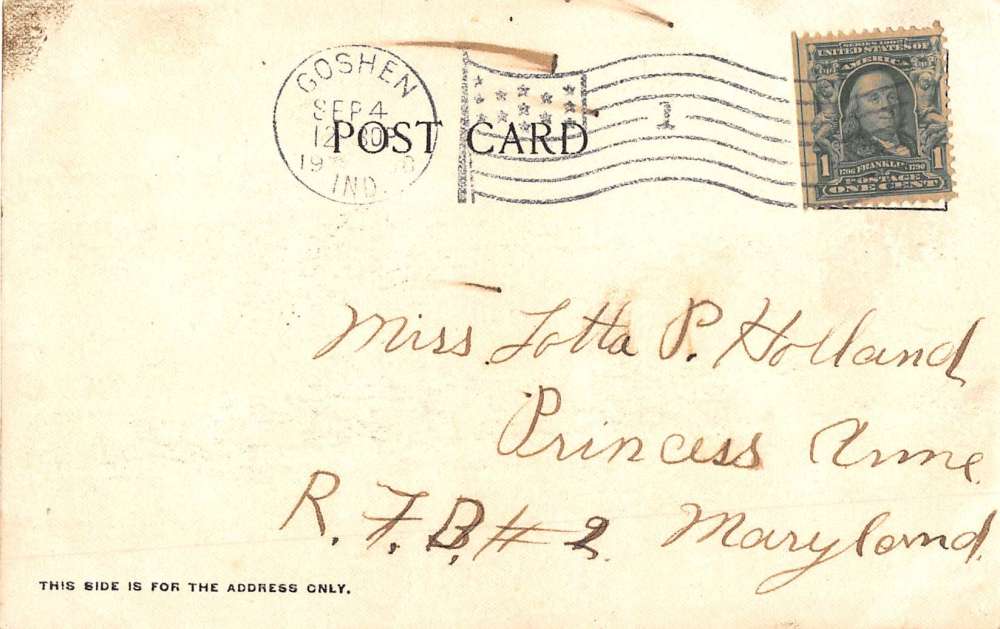 GOSHEN
SEP 4
12 30
19 8
IND.
1
SERIES 1902
UNITED STATES OF
AMERICA
1 1706 FRANKLIN 1790 1
POSTAGE
ONE CENT
POST CARD
Miss Lotta P. Holland
Princess Anne
R. F. D. # 2. Maryland
THIS SIDE IS FOR THE ADDRESS ONLY.